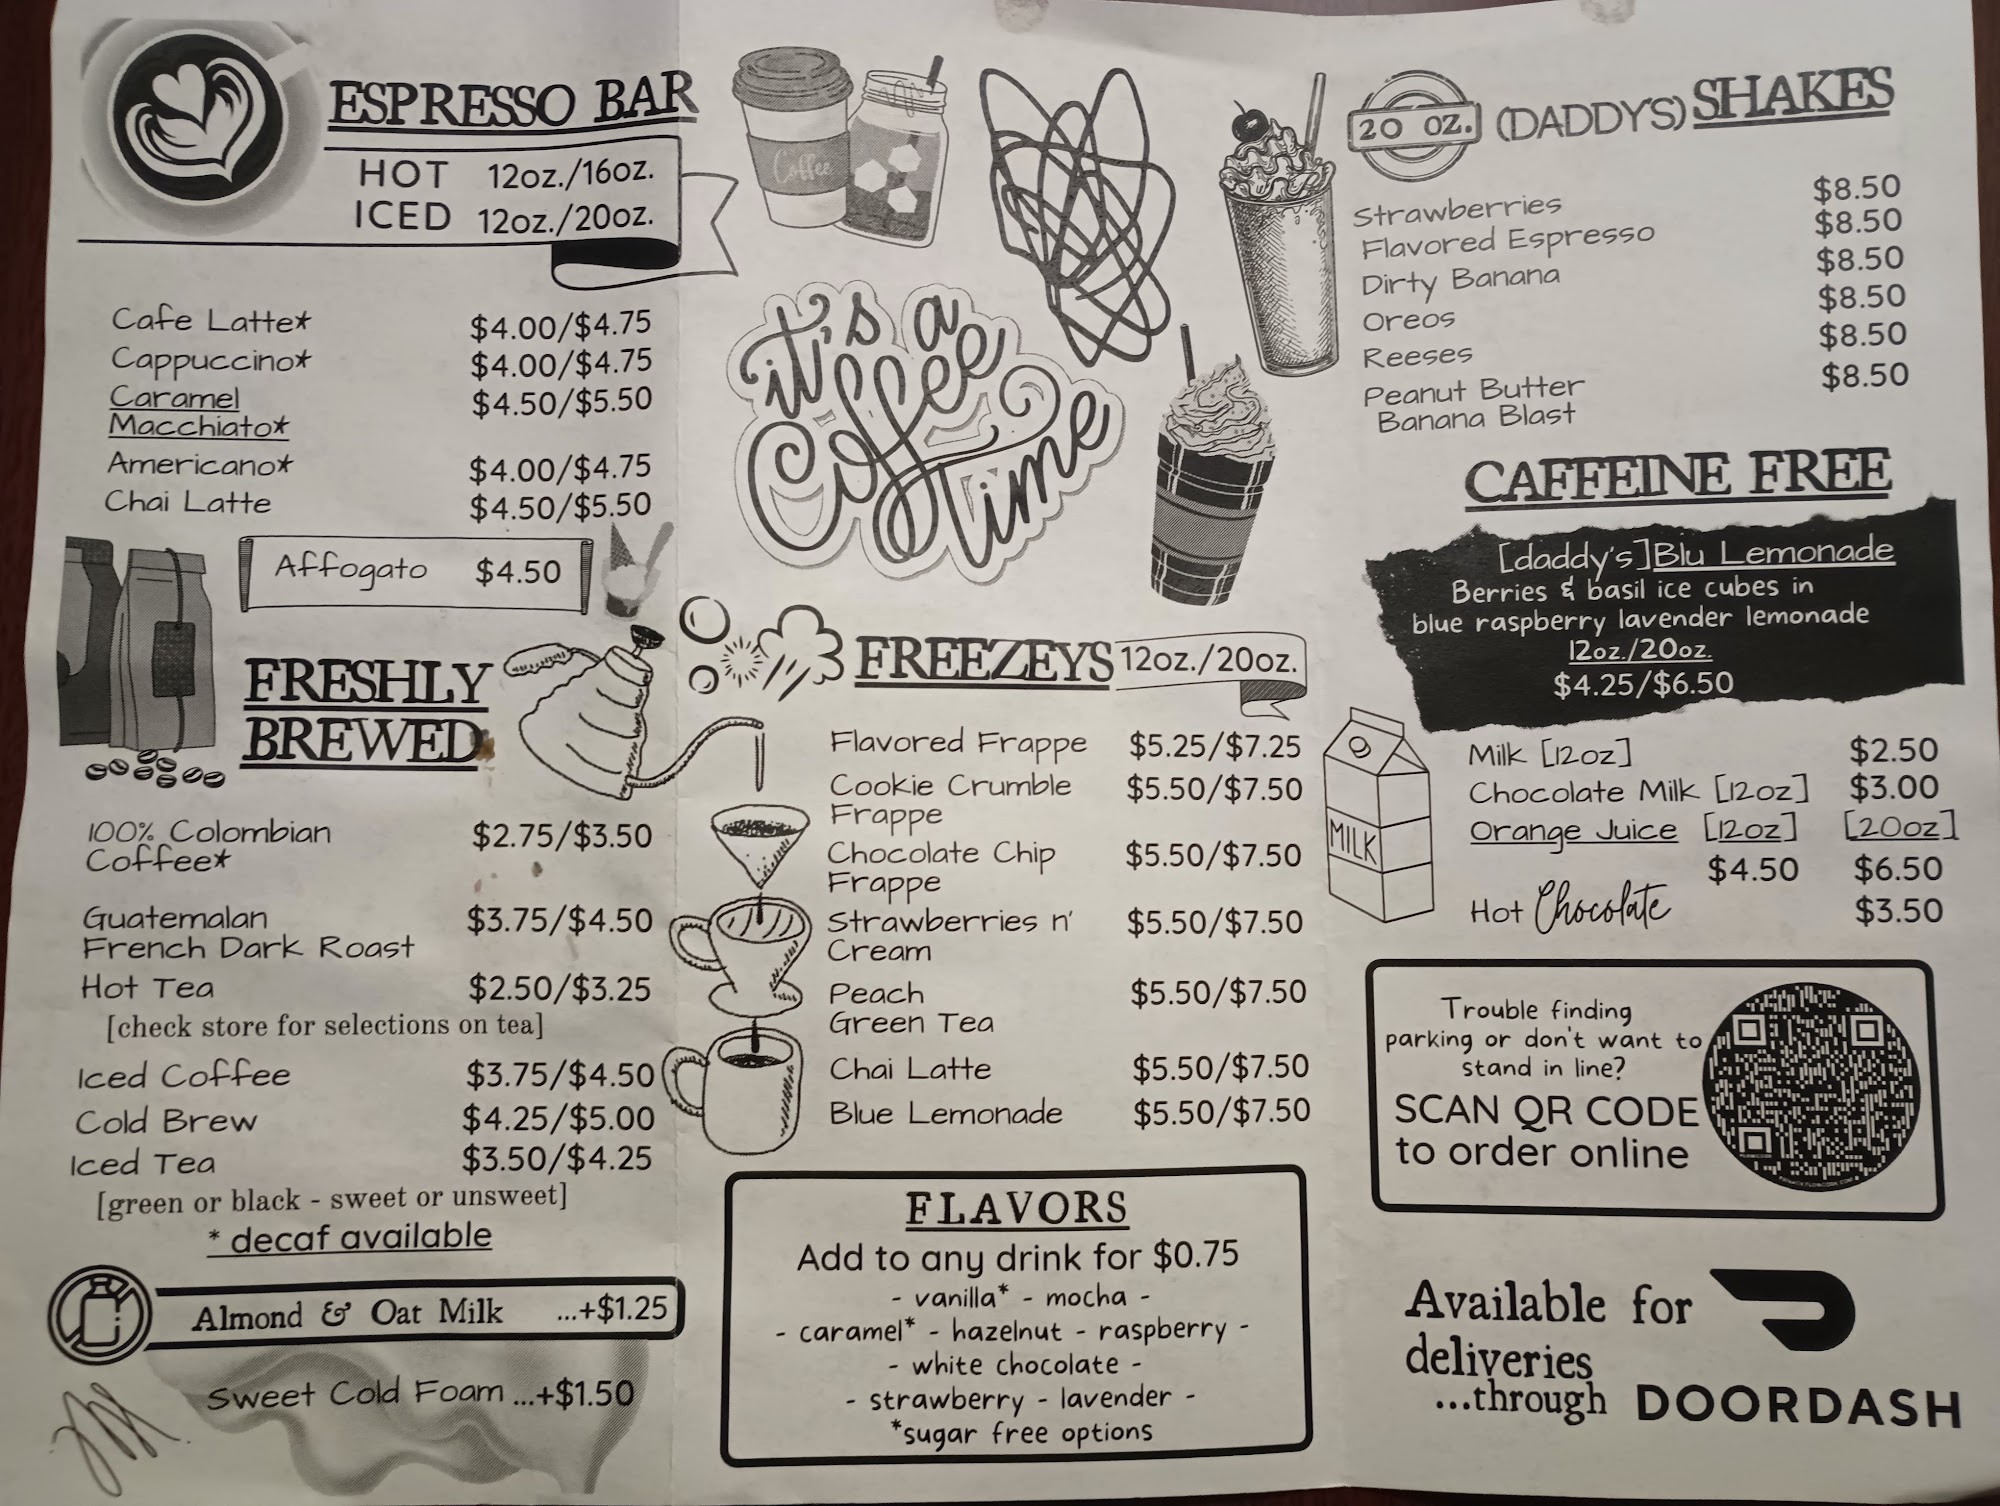 ESPRESSO BAR
HOT 12oz./16oz.
ICED 12oz./20oz.
Cafe Latte* $4.00/$4.75
Cappuccino* $4.00/$4.75
Caramel $4.50/$5.50
Macchiato*
Americano* $4.00/$4.75
Chai Latte $4.50/$5.50
Affogato $4.50
FRESHLY
BREWED
100% Colombian $2.75/$3.50
Coffee*
Guatemalan $3.75/$4.50
French Dark Roast
Hot Tea $2.50/$3.25
[check store for selections on tea]
Iced Coffee $3.75/$4.50
Cold Brew $4.25/$5.00
Iced Tea $3.50/$4.25
[green or black - sweet or unsweet]
* decaf available
Almond & Oat Milk ...+$1.25
Sweet Cold Foam ...+$1.50
Coffee
it's a
Coffee
time
FREEZEYS 12oz./20oz.
Flavored Frappe $5.25/$7.25
Cookie Crumble $5.50/$7.50
Frappe
Chocolate Chip $5.50/$7.50
Frappe
Strawberries n' $5.50/$7.50
Cream
Peach $5.50/$7.50
Green Tea
Chai Latte $5.50/$7.50
Blue Lemonade $5.50/$7.50
FLAVORS
Add to any drink for $0.75
- vanilla* - mocha -
- caramel* - hazelnut - raspberry -
- white chocolate -
- strawberry - lavender -
*sugar free options
20 OZ. (DADDY'S) SHAKES
Strawberries $8.50
Flavored Espresso $8.50
Dirty Banana $8.50
Oreos $8.50
Reeses $8.50
Peanut Butter $8.50
Banana Blast
CAFFEINE FREE
[daddy's] Blu Lemonade
Berries & basil ice cubes in
blue raspberry lavender lemonade
12oz./20oz.
$4.25/$6.50
MILK
Milk [12oz] $2.50
Chocolate Milk [12oz] $3.00
Orange Juice [12oz] [20oz]
$4.50 $6.50
Hot Chocolate $3.50
Trouble finding
parking or don't want to
stand in line?
SCAN QR CODE
to order online
Available for
deliveries
...through DOORDASH